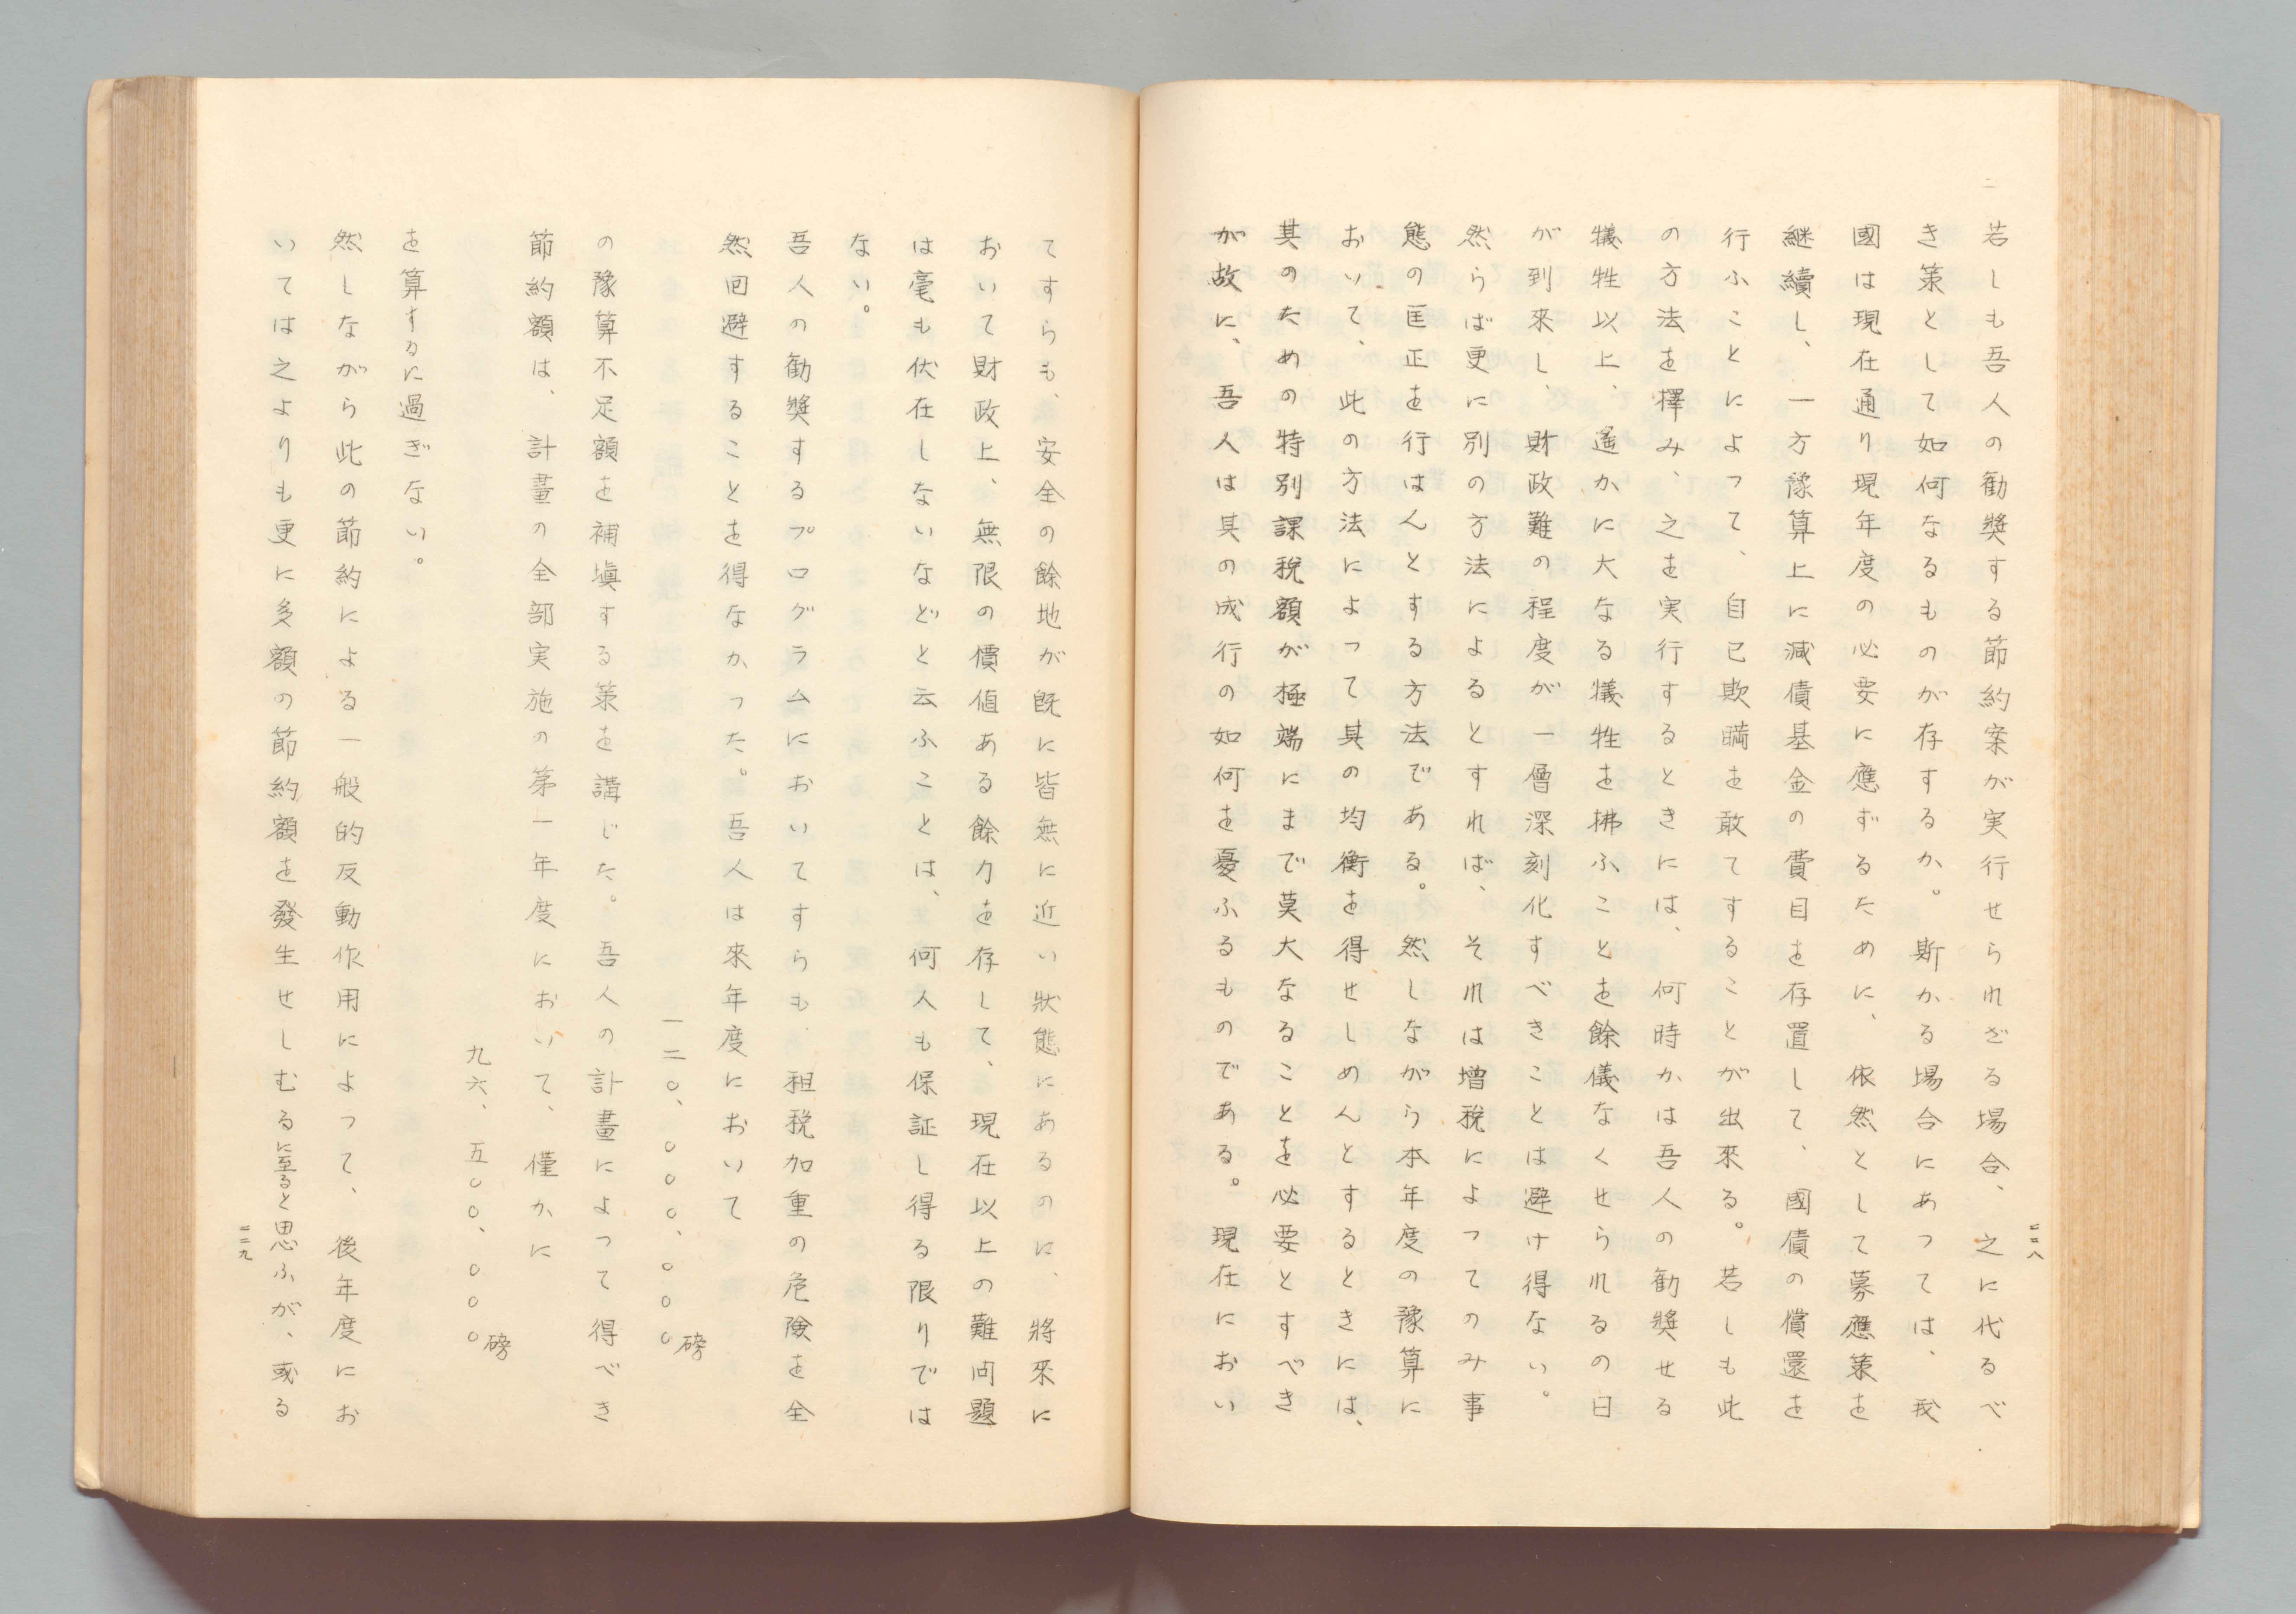 二二八
若しも吾人の勧奬する節約案が実行せられざる場合、之に代るべ
き策として如何なるものが存するか。斯かる場合にあっては、我
國は現在通り現年度の必要に應ずるために、依然として募應策を
継續し、一方豫算上に減債基金の費目を存置して、國債の償還を
行ふことによって、自已欺瞞を敢てすることが出來る。若しも此
の方法を擇み、之を実行するときには、何時かは吾人の勧奬せる
犠牲以上、遙かに大なる犠牲を拂ふことを餘儀なくせられるの日
が到來し、財政難の程度が一層深刻化すべきことは避け得ない。
然らば更に別の方法によるとすれば、それは増税によってのみ事
態の匡正を行はんとする方法である。然しながら本年度の豫算に
おいて、此の方法によって其の均衡を得せしめんとするときには、
其のための特別課税額が極端にまで莫大なることを必要とすべき
が故に、吾人は其の成行の如何を憂ふるものである。現在におい
てすらも、安全の餘地が既に皆無に近い狀態にあるのに、將來に
おいて財政上、無限の價値ある餘力を存して、現在以上の難問題
は毫も伏在しないなどと云ふことは、何人も保証し得る限りでは
ない。
吾人の勧奬するプログラムにおいてすらも、租税加重の危険を全
然回避することを得なかった。吾人は來年度において
一二〇、〇〇〇、〇〇〇磅
の豫算不足額を補塡する策を講じた。吾人の計畫によって得べき
節約額は、計畫の全部実施の第一年度において、僅かに
九六、五〇〇、〇〇〇磅
を算するに過ぎない。
然しながら此の節約による一般的反動作用によって、後年度にお
いては之よりも更に多額の節約額を發生せしむるに至ると思ふが、或る
二二九